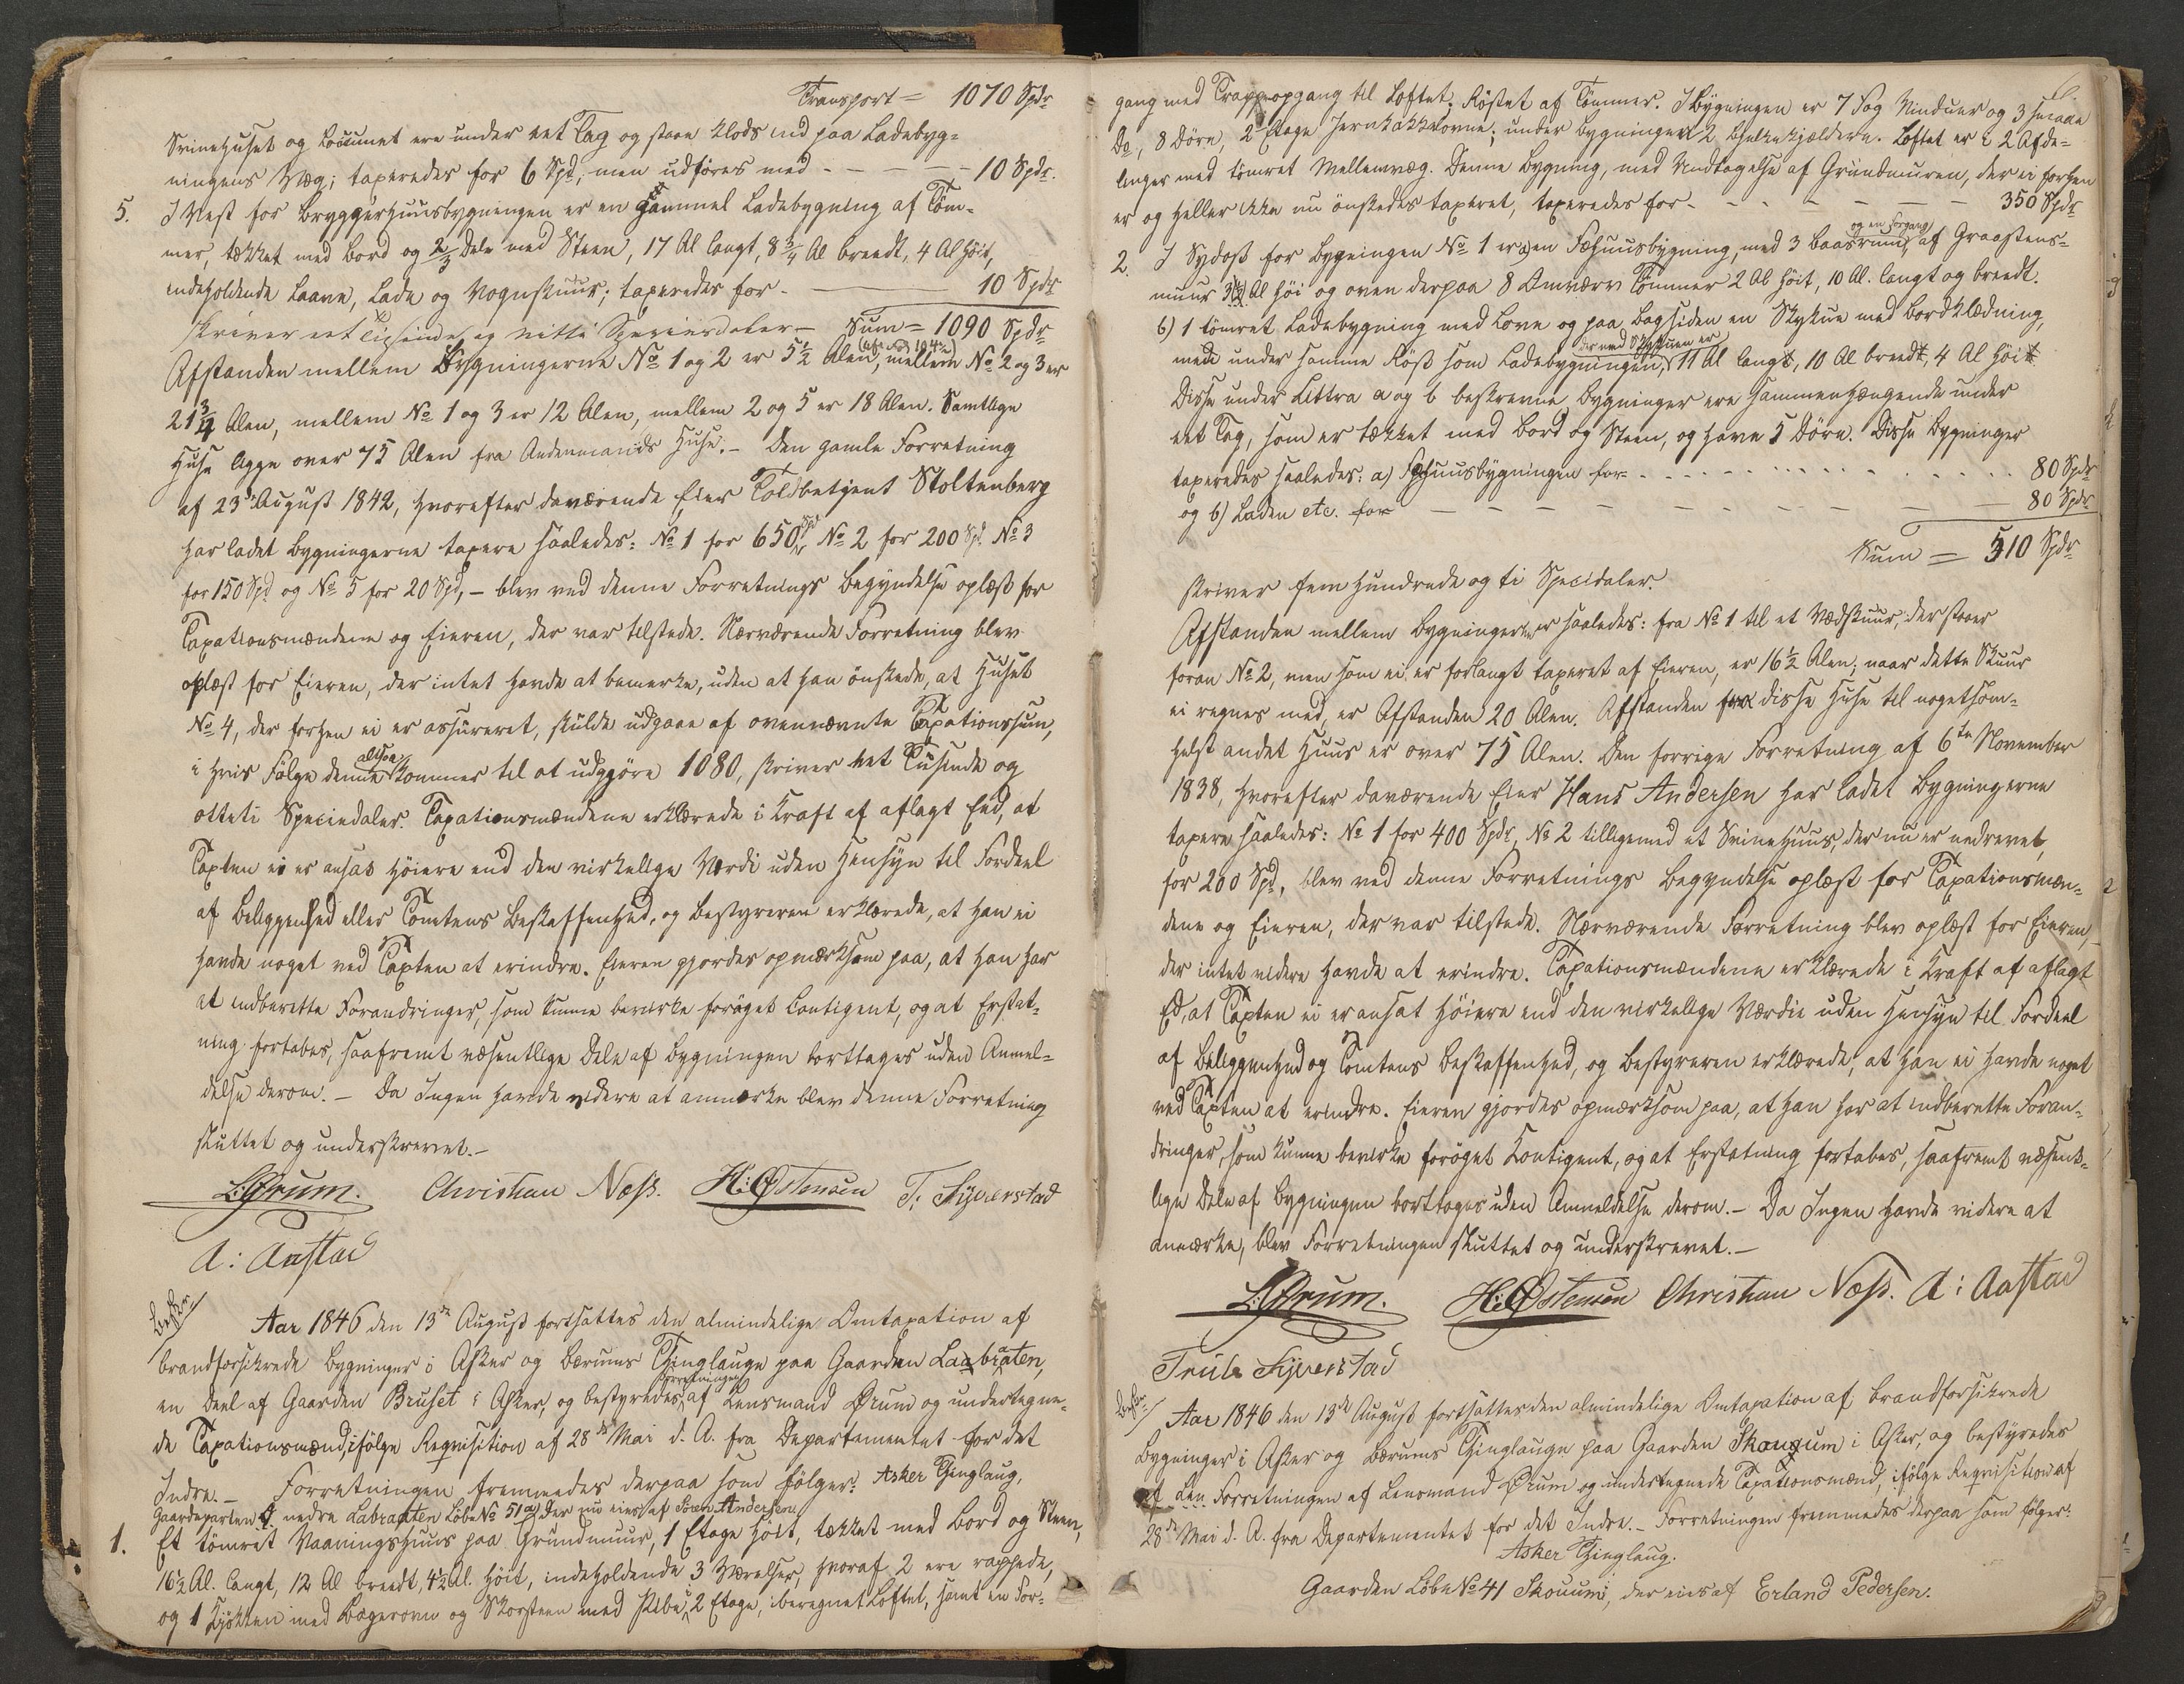 Transport = 1070 Spdr
Svinehuset og Locumet ere under eet Tag og staae klods ind paa Ladebyg-
ningens Væg; taxeredes for 6 Spd, men udføres med - - - - 10 Spdr.
5. I Vest for Bryggerhuusbygningen er en gammel Ladebygning af Tøm-
mer, tækket med Bord og 2/3 Dele med Steen, 17 Al langt, 8 3/4 Al breedt, 4 Al høit,
indeholdende Laave, Lade og Vognskuur; taxeredes for - 10 Spdr
skriver eet Tusinde og nitti Speciedaler - Sum = 1090 Spdr
Afstanden mellem Bygningerne No 1 og 2 er 5 1/2 Alen, mellem No 2 og 3 er
21 3/4 Alen, mellem No 1 og 3 er 12 Alen, mellem 2 og 5 er 18 Alen. Samtlige
Huse ligge over 75 Alen fra Andenmands Huse. - Den gamle Forretning
af 23de August 1842, hvorefter daværende Eier Toldbetjent Stoltenberg
har ladet Bygningerne taxere saaledes: No 1 for 650 Spd, No 2 for 200 Spd No 3
for 150 Spd og No 5 for 20 Spd, - blev ved denne Forretnings Begyndelse oplæst for
Taxationsmændene og Eieren, der var tilstede. Nærværende Forretning blev
oplæst for Eieren, der intet havde at bemærke, uden at han ønskede, at Huset
No 4, der forhen ei er assureret, skulde udgaae af ovennævnte Taxationssum,
i hvis Følge denne altsaa kommer til at udgjøre 1080, skriver eet Tusinde og
otteti Speciedaler. Taxationsmændene erklærede i Kraft af aflagt Eed, at
Taxten ei er ansat høiere end den virkelige Værdi uden Hensyn til Fordeel
af Beliggenhed eller Tomtens Beskaffenhed, og Bestyreren erklærede, at han ei
havde noget ved Taxten at erindre. Eieren gjordes opmærksom paa, at han har
at indberette Forandringer, som kunne bevirke forøget Contigent, og at Erstat-
ning fortabes, saafremt væsentlige Dele af Bygningen borttages uden Anmel-
delse derom. - Da Ingen havde videre at anmærke blev denne Forretning
sluttet og underskrevet. -
L. Ørum. Christian Næss. H: Østensen T: Syverstad
A: Aastad
Aar 1846 den 13de August fortsattes den almindelige Omtaxation af
brandforsikrede Bygninger i Asker og Bærums Thinglauge paa Gaarden Labraaten,
en Deel af Gaarden Bruset i Asker, og bestyredes Forretningen af Lensmand Ørum og undertegne-
de Taxationsmænd, ifølge Reqvisition af 28de Mai d. A. fra Departementet for det
Indre. - Forretningen fremmedes derpaa som følger: Asker Thinglaug,
Gaardparten nedre Labraaten Løbe No 51a, der nu eies af Søren Andersen.
1. Et tømret Vaaningshuus paa Grundmuur, 1 Etage høit, tækket med Bord og Steen,
16 1/2 Al. langt, 12 Al breedt, 4 1/2 Al. høit, indeholdende 3 Værelser, hvoraf 2 ere rappede,
og 1 Kjøkken med Bagerovn og Skorsteen med Pibe, 2 Etage, iberegnet Loftet, samt en For-
gang med Trappeopgang til Loftet. Røstet af Tømmer. I Bygningen er 7 Fag Vinduer og 3 smaae
Do, 8 Døre, 2 Etage Jernkakkelovne; under Bygningen 2 Kjeldere. Loftet er i 2 Afde-
linger med tømret Mellemvæg. Denne Bygning, med Undtagelse af Grundmuren, der ei forhen
er og heller ikke nu ønskedes taxeret, taxeredes for - - - 350 Spdr
2. I Sydost for Bygningen No 1 er a) en Fæhuusbygning, med 3 Baasrum og en Forgang, af Graasteens-
muur 3 1/2 Al høi og oven derpaa 8 Omværv Tømmer 2 Al høit, 10 Al. langt og breedt.
b) 1 tømret Ladebygning med Love og paa Bagsiden en Skykue med Bordklædning,
med under samme Røst som Ladebygningen, der med Skykuen er 11 Al langt, 10 Al breedt, 4 Al høit
Disse under Littra a og b beskrevne Bygninger ere sammenhængende under
eet Tag, som er tækket med Bord og Steen, og have 5 Døre. Disse Bygninger
taxeredes saaledes: a) Fæhuusbygningen for - - - 80 Spdr
og b) Laden etc. for - - - 80 Spdr
Sum = 510 Spdr
skriver fem Hundrede og ti Specidaler.
Afstanden mellem Bygningerne er saaledes: fra No 1 til et Vedskuur, der staaer
foran No 2, men som ei er forlangt taxeret af Eieren, er 16 1/2 Alen; naar dette Skuur
ei regnes med, er Afstanden 20 Alen. Afstanden fra disse Huse til nogetsom-
helst andet Huus er over 75 Alen. Den forrige Forretning af 6te November
1838, hvorefter daværende Eier Hans Andersen har ladet Bygningerne
taxere saaledes: No 1 for 400 Spdr, No 2 tilligemed et Svinehuus, der nu er nedrevet,
for 200 Spd, blev ved denne Forretnings Begyndelse oplæst for Taxationsmæn-
dene og Eieren, der var tilstede. Nærværende Forretning blev oplæst for Eieren,
der intet videre havde at erindre. Taxationsmændene erklærede i Kraft af aflagt
Ed, at Taxten ei er ansat høiere end den virkelige Værdie uden Hensyn til Fordeel
af Beliggenhed og Tomtens Beskaffenhed, og Bestyreren erklærede, at han ei havde noget
ved Taxten at erindre. Eieren gjordes opmærksom paa, at han har at indberette Foran-
dringer, som kunne bevirke forøget Contigent, og at Erstatning fortabes, saafremt væsent-
lige Dele af Bygningen borttages uden Anmeldelse derom. - Da Ingen havde videre at
anmærke, blev Forretningen sluttet og underskrevet. -
L. Ørum. H: Østensen Christian Næss. A: Aastad
Truls Syverstad
Aar 1846 den 13de August fortsattes den almindelige Omtaxation af brandforsikrede
Bygninger i Asker og Bærums Thinglauge paa Gaarden Skougum i Asker, og bestyredes
Forretningen af Lensmand Ørum og undertegnede Taxationsmænd, ifølge Reqvisition af
28de Mai d. A. fra Departementet for det Indre. - Forretningen fremmedes derpaa som følger:
Asker Thinglaug.
Gaarden Løbe No 41 Skouum, der eies af Erland Pedersen.